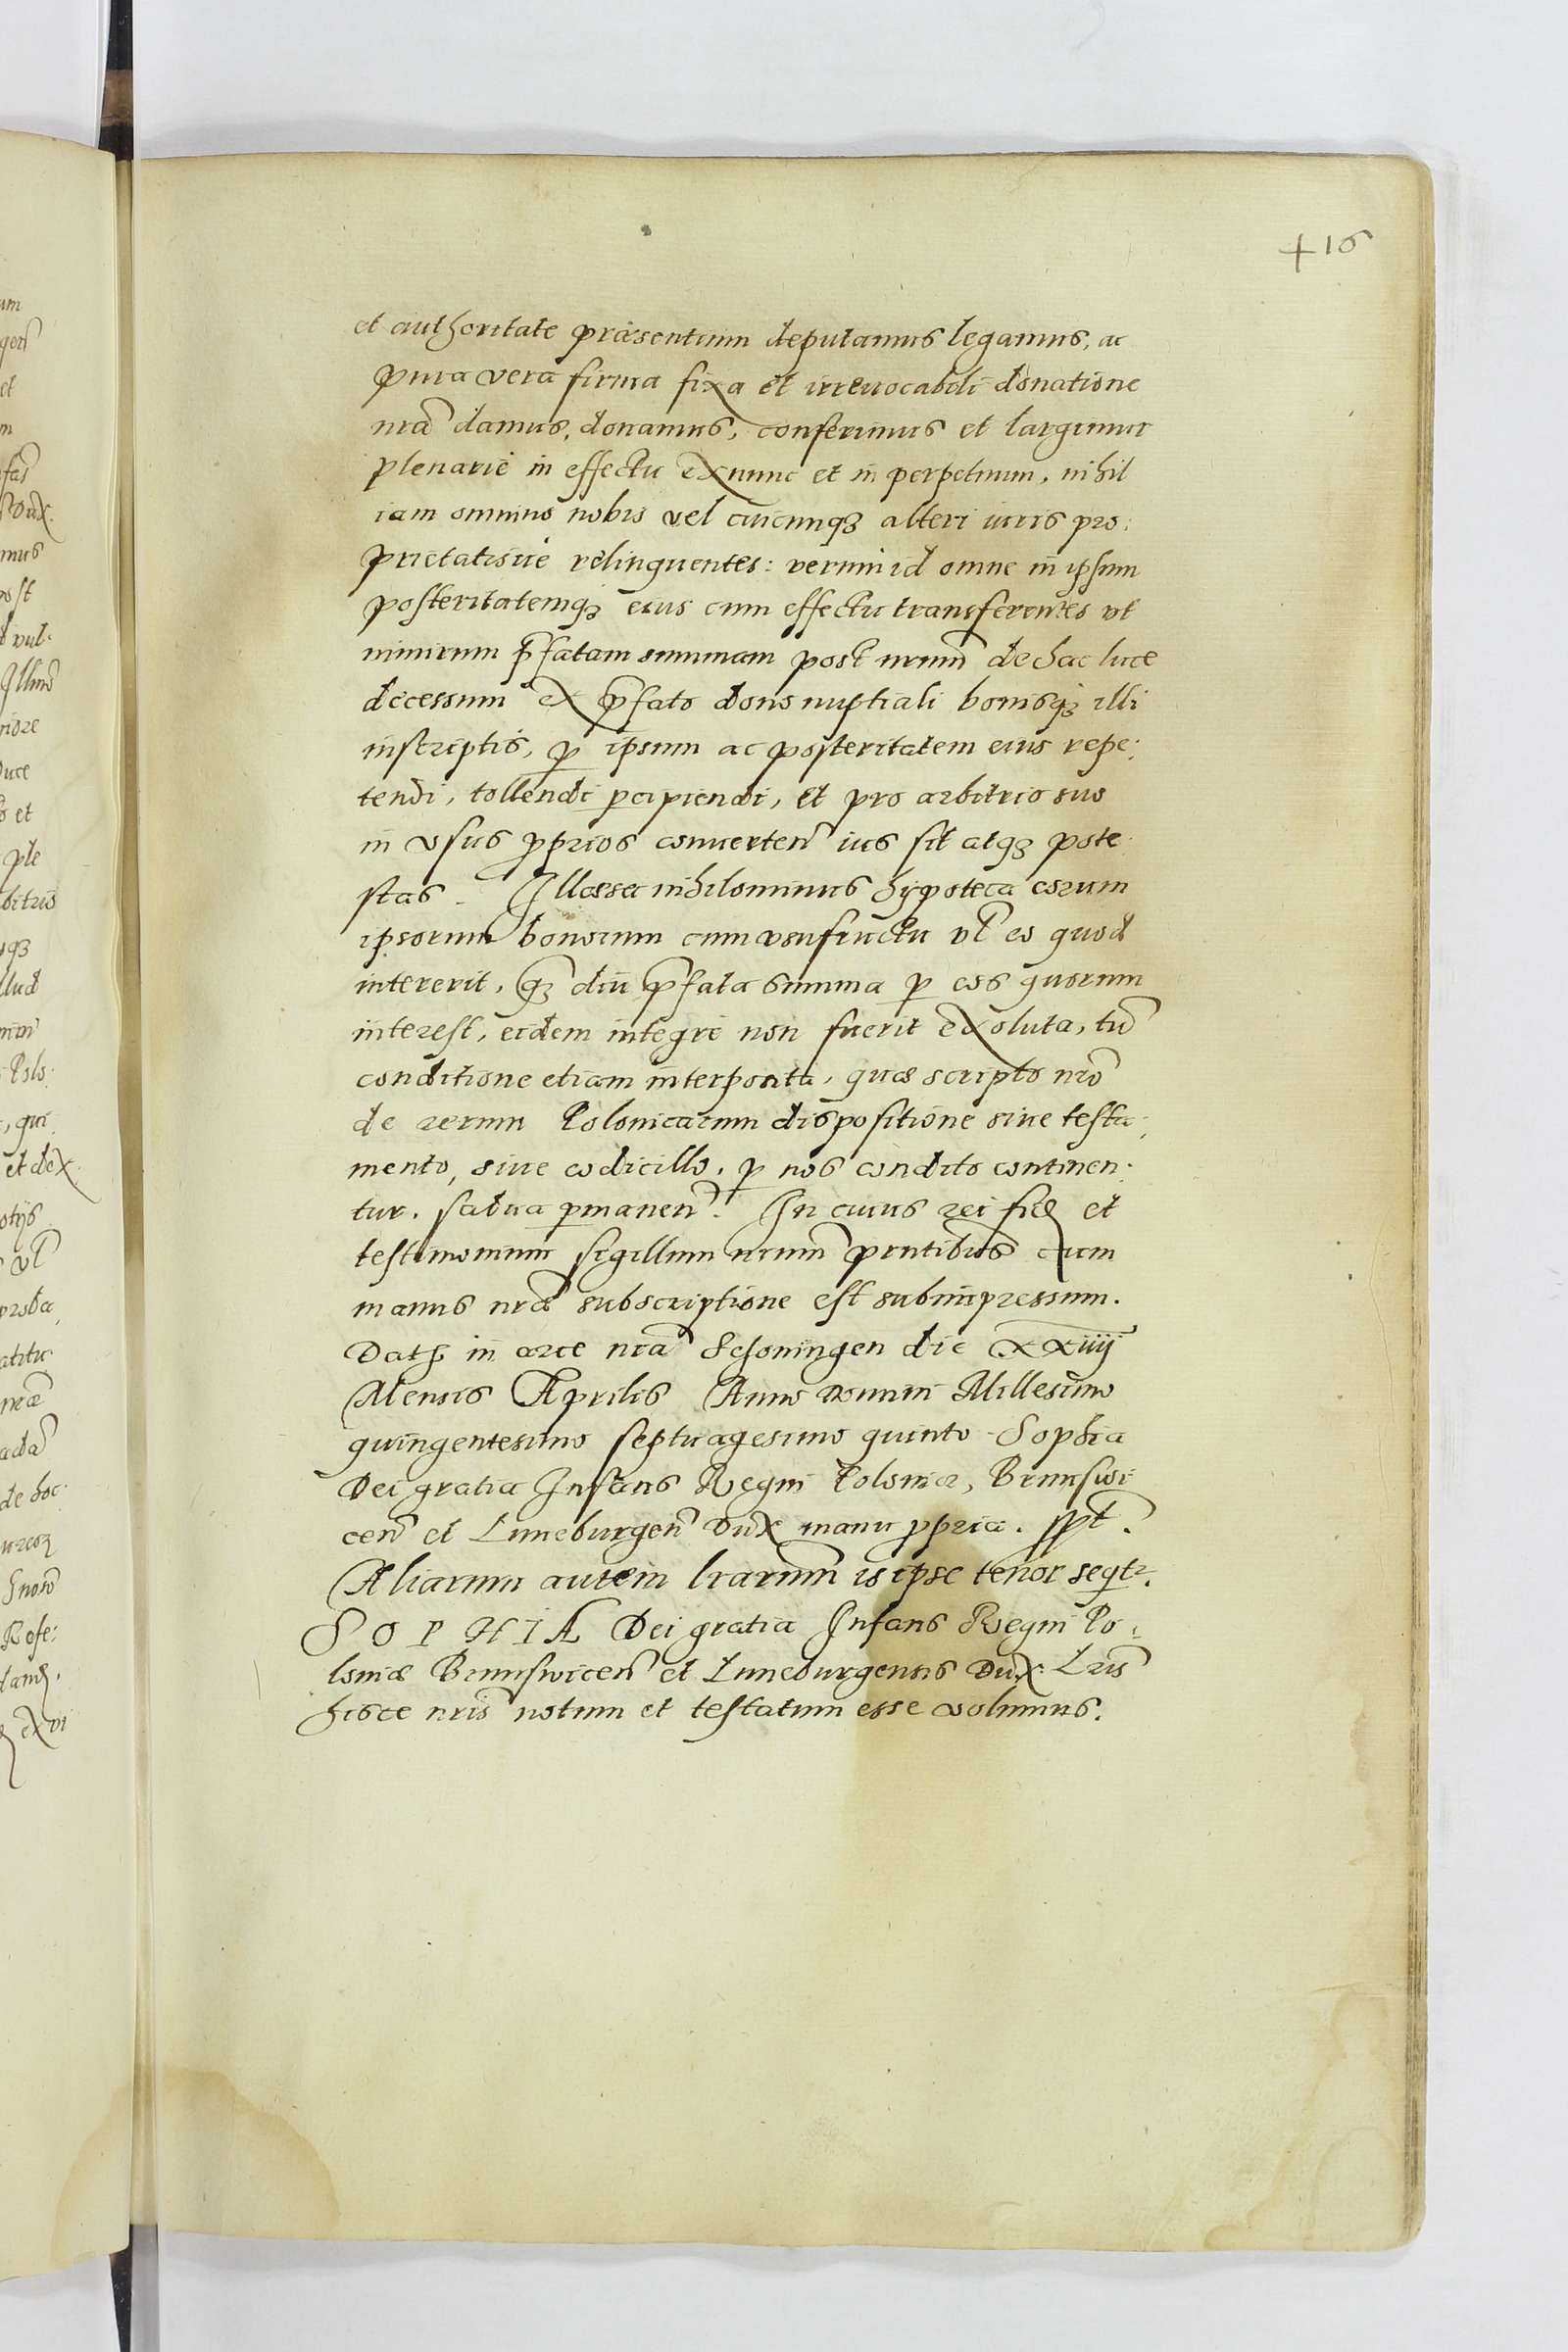 +16
et authoritate præsentium deputamus legamus, ac
pura vera firma fixa et irreuocabili donatione
nrã damus, donamus, conferimus et largimur
plenarie in effectu ex nunc et in perpetuum, nihil
iam omnino nobis vel cuicunqꝫ alteri iuris pro:
prietatisue relinquentes: verum id omne in ipsum
posteritatemqꝫ eius cum effectu transferentes vt
nimirum p̃fatam summam post nrum̃ de hac luce
decessum ex p̃fato dono nuptiali bonisqꝫ illi
inscriptis, ꝑ ipsum ac posteritatem eius repe:
tendi, tollendi ꝑcipiendi, et pro arbitrio suo
in vsus ꝓprios conuerten̄ ius sit atqꝫ pote:
stas. Illæsa nihilominus hypoteca eorum
ipsorum bonorum cum vsufructu vl̃ eo quod
intererit, qꝫ diu p̃fata summa ꝑ eos quorum
interest, eidem integre non fuerit exoluta, tũ
conditione etiam interposita, quæ scripto nrõ
de rerum Polonicarum dispositione siue testa:
mento, siue codicillo, ꝑ nos condito continen:
tur. salua ꝑmanen̄. In cuius rei fidẽ et
testimonium sigillum nrum̃ pñtibus cum
manus nræ̃ subscriptione est subimpressum.
Datꝭ in arce nrã Schoningen die xxiiij
Mensis Aprilis Anno Domini Millesimo
quingentesimo septuagesimo quinto Sophia
Dei gratia Infans Regni Poloniæ, Brunswi
cen̄ et Luneburgen̄ Dux manu ꝓpria. sspt.
Aliarum autem lrarum̃ is ipse tenor seqtr.
SOPHIA Dei gratia Infans Regni Po:
loniæ Brunswicen̄ et Luneburgensis Dux. Lris̃
hisce nris̃ notum et testatum esse volumus.